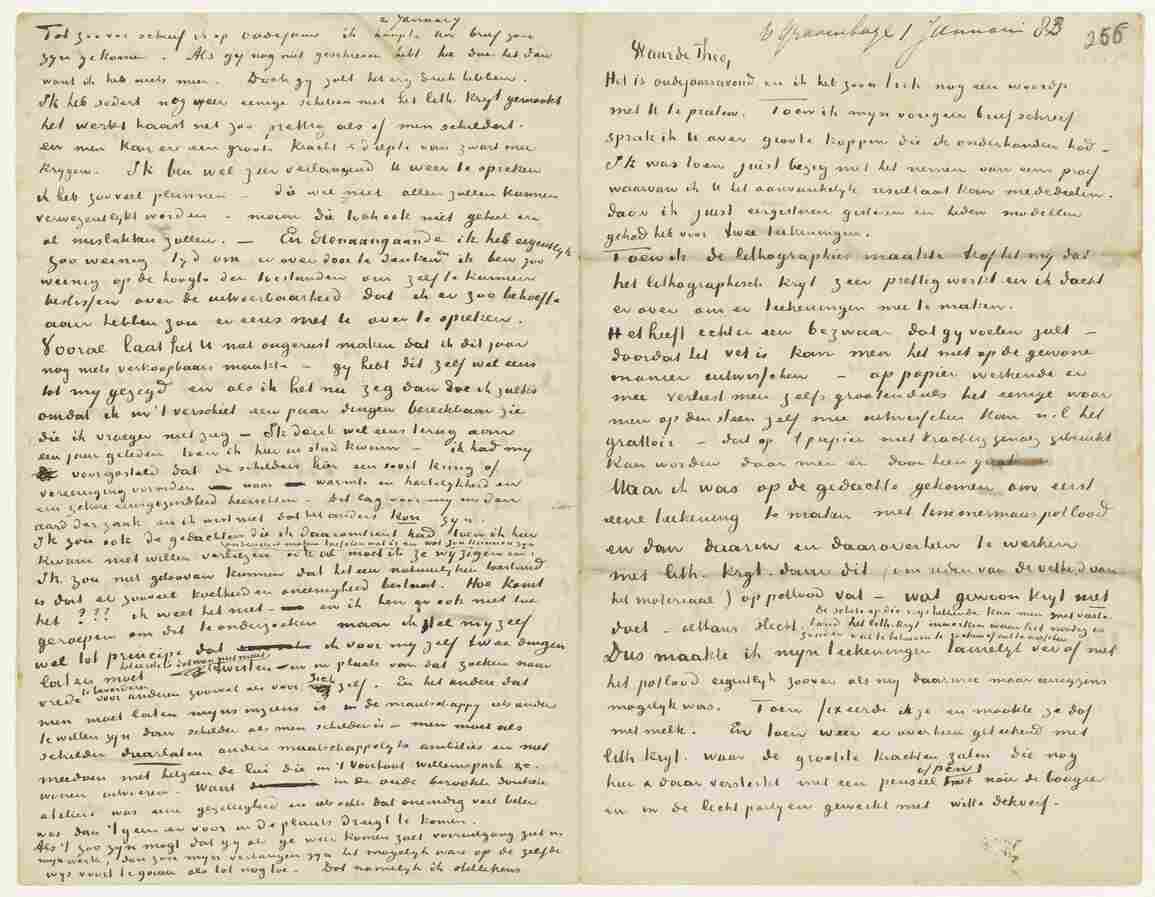 2 January
Tot zoover schreef ik op oudejaar ik hoopte uw brief zou
zyn gekomen. Als gy nog niet geschreven hebt doe het dan
want ik heb niets meer. Doch gy zult het erg druk hebben.
Ik heb sedert nog weer eenige schetsen met het lith. kryt gemaakt
het werkt haast net zoo prettig als of men schildert.
en men kan er een groote kracht & diepte van zwart mee
krygen. Ik ben wel zeer verlangend U weer te spreken
ik heb zooveel plannen – die wel niet allen zullen kunnen
verwezentlykt worden – maar die toch ook niet geheel en
al mislukken zullen. – En dienaangaande ik heb eigentlyk
zoo weinig tyd om er over door te denken en ik ben zoo
weinig op de hoogte der toestanden om zelf te kunnen
beslissen over de uitvoerbaarheid dat ik er zoo behoefte
aan hebben zou er eens met U over te spreken.
Vooral laat het U niet ongerust maken dat ik dit jaar
nog niets verkoopbaars maakte – gy hebt dit zelf wel eens
tot my gezegd en als ik het nu zeg dan doe ik zulks
omdat ik in 't verschiet een paar dingen bereikbaar zie
die ik vroeger niet zag – Ik denk wel eens terug aan
een jaar geleden toen ik hier in stad kwam – ik had my
voorgesteld dat de schilders hier een soort kring of
vereeniging vormden waar warmte en hartelykheid en
een zekere eensgezindheid heerschten. Dit lag voor my in den
aard der zaak en ik wist niet dat het anders kon zyn.
Ik zou ook de gedachten die ik daaromtrent had toen ik hier
kwam niet willen verliezen ook al moet ik ze wyzigen en
Ik zou niet gelooven kunnen dat het een natuurlyken toestand
is dat er zooveel koelheid en oneenigheid bestaat. Hoe komt
het ??? ik weet het niet – en ik ben er ook niet toe
geroepen om dit te onderzoeken maar ik stel my zelf
wel tot principe dat ik voor my zelf twee dingen
laten moet
twisten en in plaats van dat zoeken naar
vrede te bevorderen voor anderen zoowel als voor zich zelf. En het andere dat
men moet laten myns inziens is in de maatschappy iets anders
te willen zyn dan schilder als men schilder is – men moet als
schilder daarlaten andere maatschappelyke ambities en niet
meedoen met hetgeen de lui die in 't Voorhout willemspark zs.
wonen uitvoeren. Want in de oude berookte donkere
ateliers was een gezelligheid en iets echts dat oneindig veel beter
was dan 't geen er voor in de plaats dreigt te komen.
Als 't zoo zyn mogt dat gy als ge weer komen zult vooruitgang ziet in
myn werk, dan zou myn verlangen zyn het mogelyk ware op de zelfde
wys voort te gaan als tot nog toe. Dat namelyk ik stillekens
s Gravenhage 1 Januari 83
256
Waarde Theo,
Het is oudejaarsavond en ik het zoo toch nog een woordje
met U te praten. Toen ik myn vorigen brief schreef
sprak ik U over groote koppen die ik onderhanden had –
Ik was toen juist bezig met het nemen van eene proef
waarvan ik U het aanvankelyke resultaat kan mededeelen.
daar ik juist eergisteren gisteren en heden modellen
gehad heb voor twee teekeningen.
Toen ik de lithographies maakte trof het my dat
het lithographisch kryt zeer prettig werkt en ik dacht
er over om er teekeningen mee te maken.
Het heeft echter een bezwaar dat gy voelen zult –
doordat het vet is kan men het niet op de gewone
manier uitwisschen – op papier werkende er
mee verliest men zelfs grootendeels het eenige waar
men op den steen zelf mee uitwisschen kan n.l. het
grattoir – dat op 't papier niet krachtig genoeg gebruikt
kan worden daar men er door heen
Maar ik was op de gedachte gekomen om eerst
eene teekening te maken met timmermanspotlood
en dan daarin en daaroverheen te werken
met lith. kryt. daar dit, (om reden van de vetheid van
het materiaal) op potlood vat – wat gewoon kryt niet
doet – althans slecht.
Dus maakte ik myn teekeningen tamelyk ver af met
het potlood eigentlyk zoover als my daarmee maar eenigzins
mogelyk was. Toen fixeerde ik ze en maakte ze dof
met melk. En toen weer er overheen geteekend met
lith kryt. waar de grootste krachten zaten die nog
hier & daar versterkt met een penseel of pen
en in de lichte partyen gewerkt met witte dekverf.